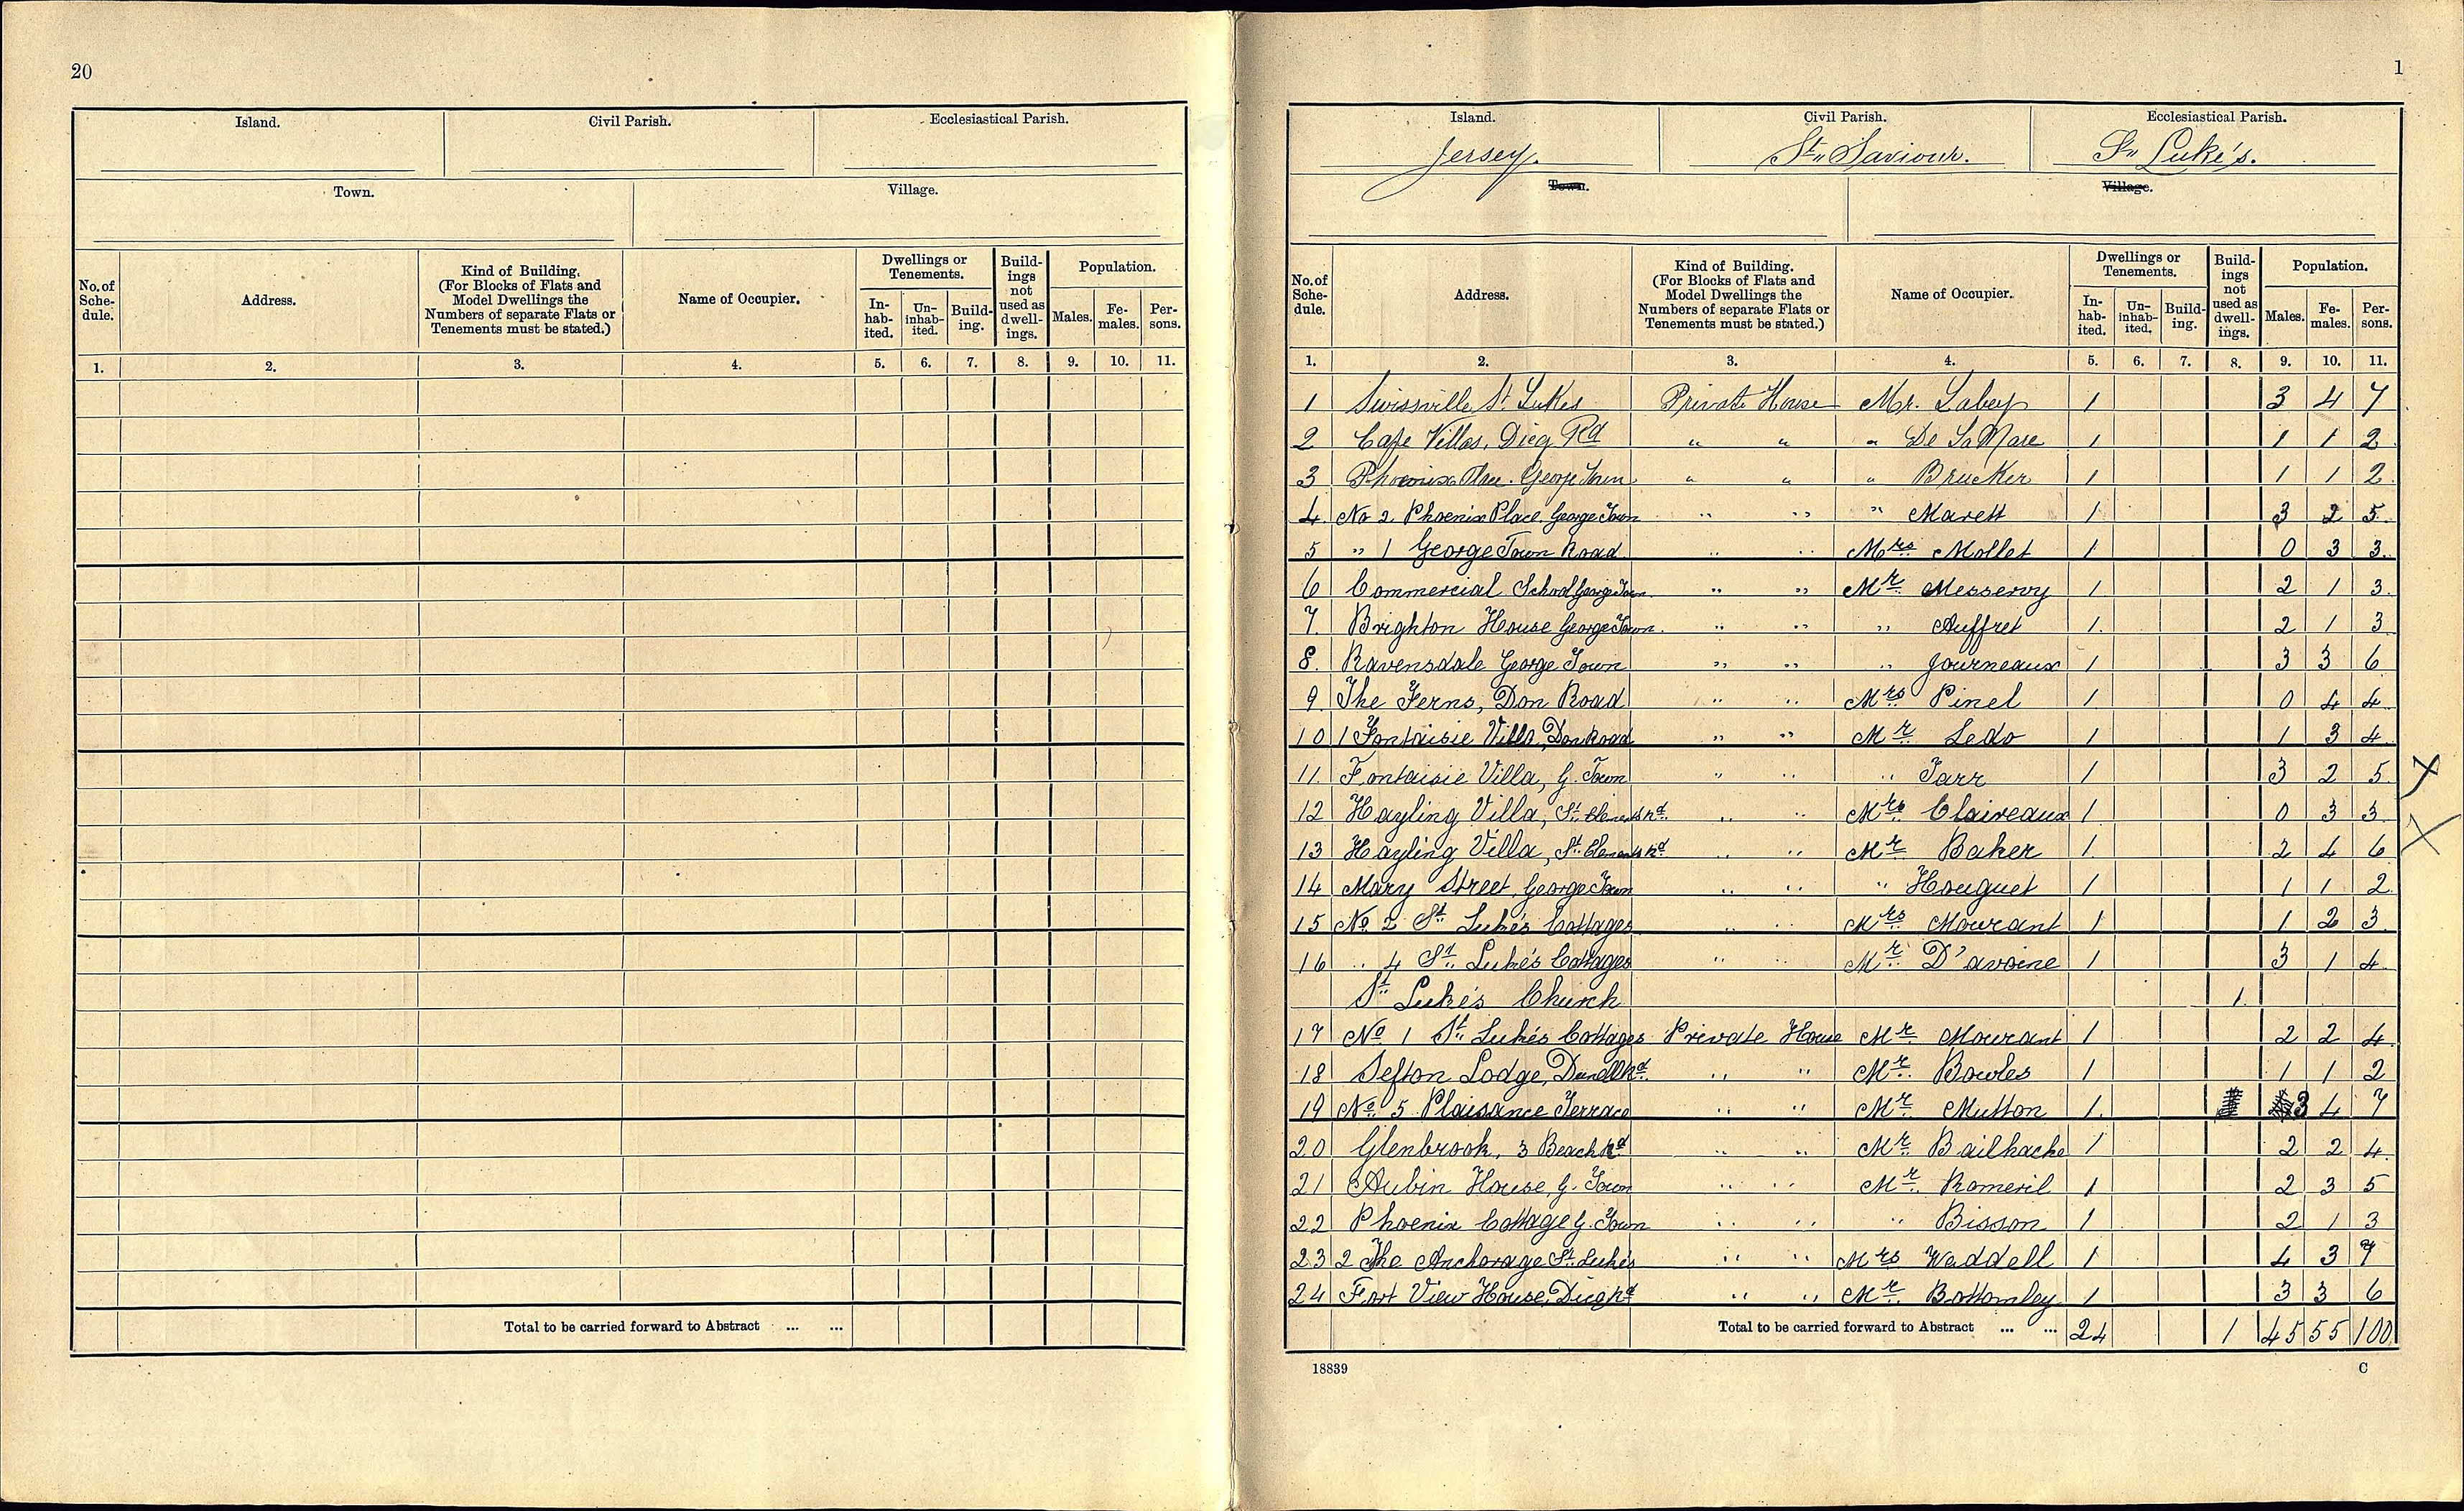 20
Island. Civil Parish. Ecclesiastical Parish.
Town. Village.
No. of Sche- dule. Address. Kind of Building. (For Blocks of Flats and Model Dwellings the Numbers of separate Flats or Tenements must be stated.) Name of Occupier. Dwellings or Tenements. In- hab- ited. Un- inhab- ited. Build- ing. Build- ings not used as dwell- ings. Population. Males. Fe- males. Per- sons.
1. 2. 3. 4. 5. 6. 7. 8. 9. 10. 11.
Total to be carried forward to Abstract ... ...
1
Island. Civil Parish. Ecclesiastical Parish.
Jersey. St. Saviour. St. Luke's.
Town. Village.
No. of Sche- dule. Address. Kind of Building. (For Blocks of Flats and Model Dwellings the Numbers of separate Flats or Tenements must be stated.) Name of Occupier. Dwellings or Tenements. In- hab- ited. Un- inhab- ited. Build- ing. Build- ings not used as dwell- ings. Population. Males. Fe- males. Per- sons.
1. 2. 3. 4. 5. 6. 7. 8. 9. 10. 11.
1 Swissville St Lukes Private House Mr. Labey 1 3 4 7
2 Villas, Dicq Rd " " " De La Mare 1 1 1 2
3 Phoenix Place. George Town " " " Brucker 1 1 1 2
4 No 2 Phoenix Place. George Town " " " Marett 1 3 2 5
5 " 1 George Town Road " " Mrs Mollet 1 0 3 3
6 Commercial School George Town " " Mr Messervy 1 2 1 3
7 Brighton House George Town. " " " Auffret 1 2 1 3
8. Ravensdale George Town " " " Journeaux 1 3 3 6
9 The Ferns, Don Road " " Mrs Pinel 1 0 4 4
10 1 Fontaisie Villa, Don Road " " Mr Ledo 1 1 3 4
11. Fontaisie Villa, G. Town " " " Tarr 1 3 2 5 X
12 Hayling Villa, St. Clements Rd. " " Mrs Claireaux 1 0 3 3
13 Hayling Villa, St. Clements Rd " " Mr Baker 1 2 4 6 X
14 Mary Street, George Town " " " Houguet 1 1 1 2
15 No 2 St. Luke's Cottages " " Mrs Mourant 1 1 2 3
16 " 4 St. Luke's Cottages " " Mr D'avoine 1 3 1 4
St. Luke's Church 1
17 No 1 St. Luke's Cottages Private House Mr Mourant 1 2 2 4
18 Sefton Lodge, Rd. " " Mr. Bowles 1 1 1 2
19 No 5 Plaisance Terrace " " Mr Mutton 1 3 4 7
20 Glenbrook, 3 Beach Rd " " Mr Bailhache 1 2 2 4
21 Aubin House, G. Town " " Mr Romeril 1 2 3 5
22 Phoenix Cottage G. Town " " " Bisson 1 2 1 3
23 2 The Anchorage St. Luke's " " Mrs Waddell 1 4 3 7
24 Fort View House, Dicq Rd " " Mr Bottomley 1 3 3 6
Total to be carried forward to Abstract ... ... 24 1 45 55 100
18839 C